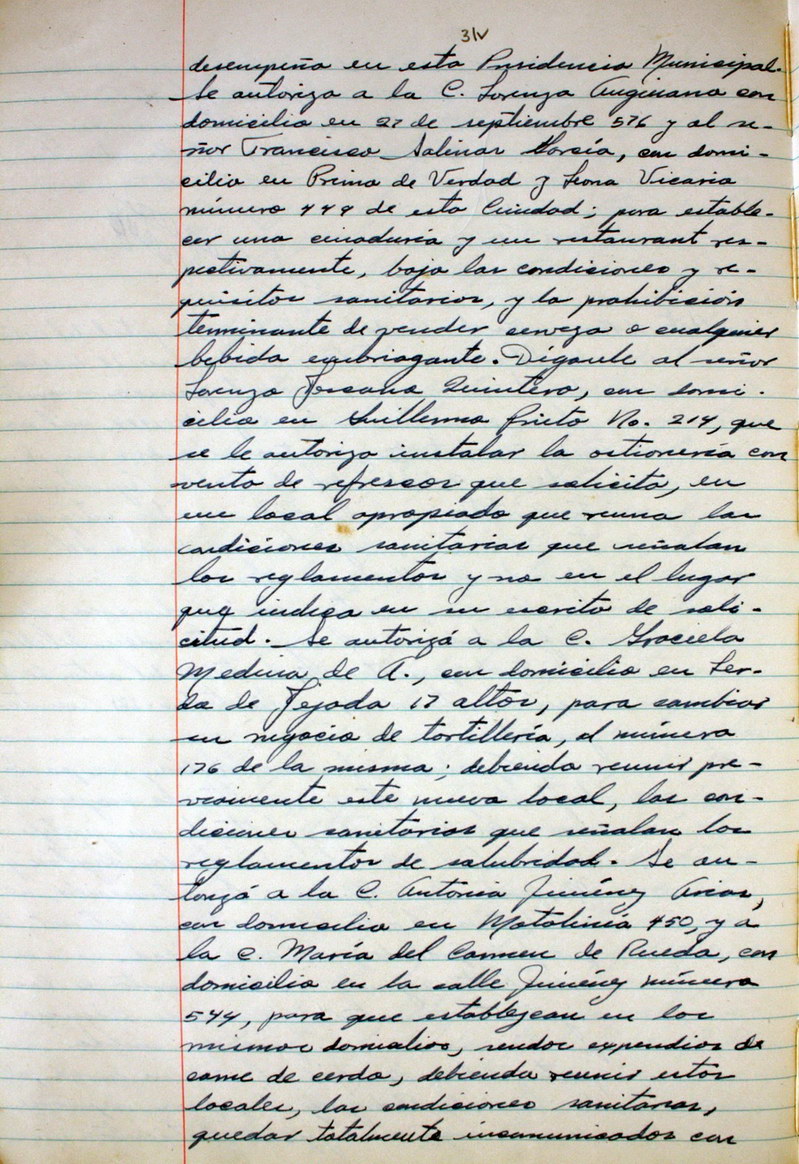 31v
desempeña en esta Presidencia Municipal.
Se autoriza a la C. Lorenza Anguiano con
domicilio en 27 de septiembre 576 y al se-
ñor Francisco Salinas García, con domi-
cilio en Primo de Verdad y Leona Vicario
número 449 de esta Ciudad; para estable-
cer una cenaduría y un restaurant res-
pectivamente, bajo las condiciones y re-
quisitos sanitarios, y la prohibición
terminante de vender cerveza o cualquier
bebida embriagante. Dígasele al señor
Lorenzo Quintero, con domi-
cilio en Guillermo Prieto No. 214, que
se le autoriza instalar la ostionería con
venta de refrescos que solicita, en
un local apropiado que reuna las
condiciones sanitarias que señalan
los reglamentos y no en el lugar
que indica en su escrito de soli-
citud. Se autorizó a la C. Graciela
Medina de A., con domicilio en Ler-
do de Tejada 17 altos, para cambiar
su negocio de tortillería, al número
176 de la misma; debiendo reunir pre-
viamente este nuevo local, las con-
diciones sanitarias que señalan los
reglamentos de salubridad. Se au-
torizó a la C. Antonia Jiménez Arias,
con domicilio en Motolinía 450, y a
la C. María del Carmen de Rueda, con
domicilio en la calle Jiménez número
544, para que establezcan en los
mismos domicilios, sendos expendios de
carne de cerdo, debiendo reunir estos
locales, las condiciones sanitarias,
quedar totalmente incomunicados con